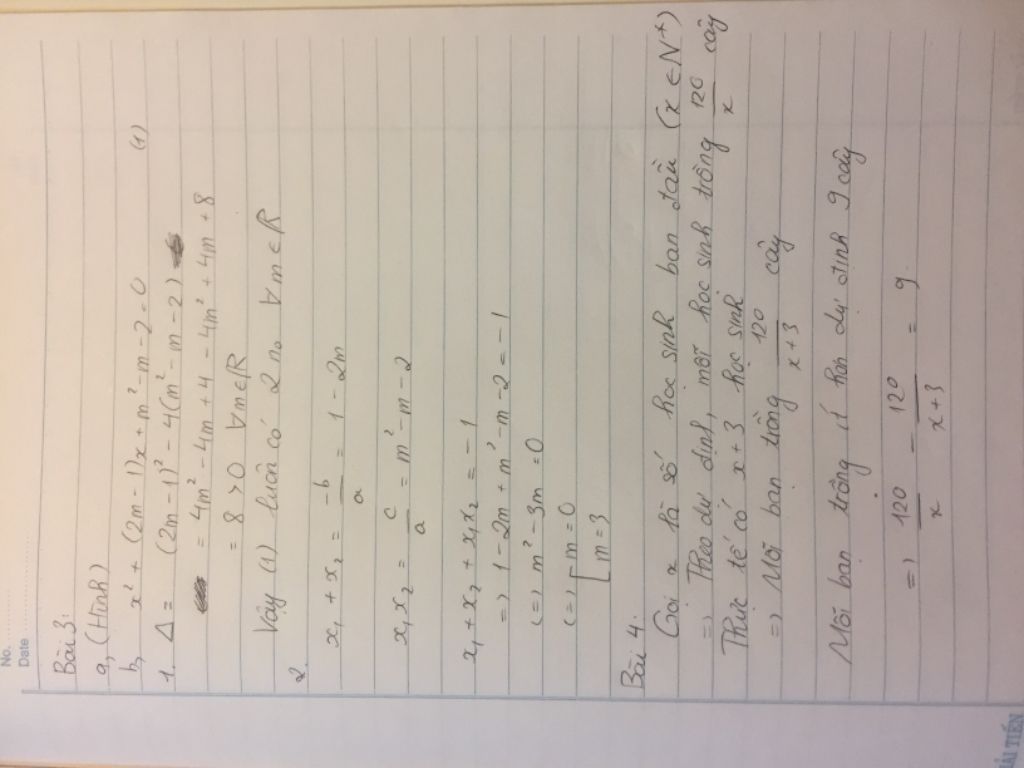 No.
Date
Bài 3:
a, (Hình)
b, x² + (2m - 1)x + m² - m - 2 = 0 (1)
1. Δ = (2m - 1)² - 4(m² - m - 2)
= 4m² - 4m + 4 - 4m² + 4m + 8
= 8 > 0 ∀m∈R
Vậy (1) luôn có 2 no ∀m∈R
2.
x₁ + x₂ = -b/a = 1 - 2m
x₁x₂ = c/a = m² - m - 2
x₁ + x₂ + x₁x₂ = -1
=> 1 - 2m + m² - m - 2 = -1
(=) m² - 3m = 0
(=) [ m = 0
m = 3
Bài 4.
Gọi x là số học sinh ban đầu (x ∈ N*)
=) Theo dự định, mỗi học sinh trồng 120/x cây
Thực tế có x + 3 học sinh
=) Mỗi bạn trồng 120/x+3 cây
Mỗi bạn trồng ít hơn dự định 9 cây
=) 120/x - 120/x+3 = 9
HẢI TIẾN